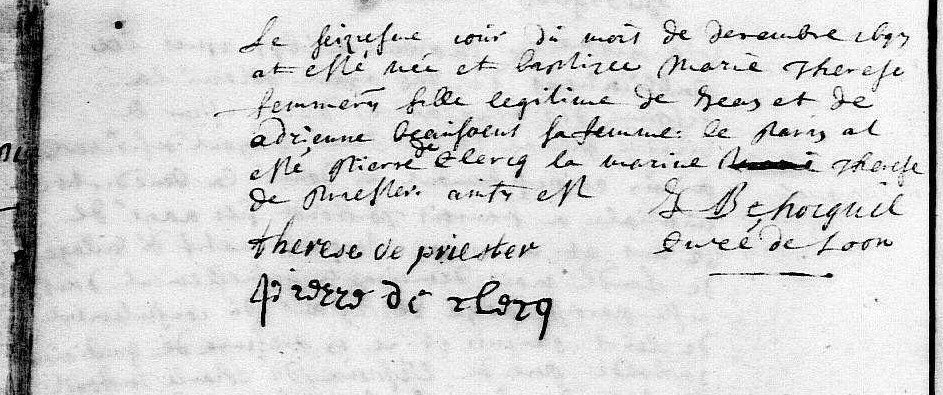 Le seiziesme iour du mois de decembre 1697
at esté née et baptizee Marie Therese
femmery fille legitime de Jeas et de
adrienne beausoent sa femme: le parin at
esté Pierre de Clercq la marine Therese
de Priester. ainsy est
Curé de Loon
therese de priester
pierre de clercq